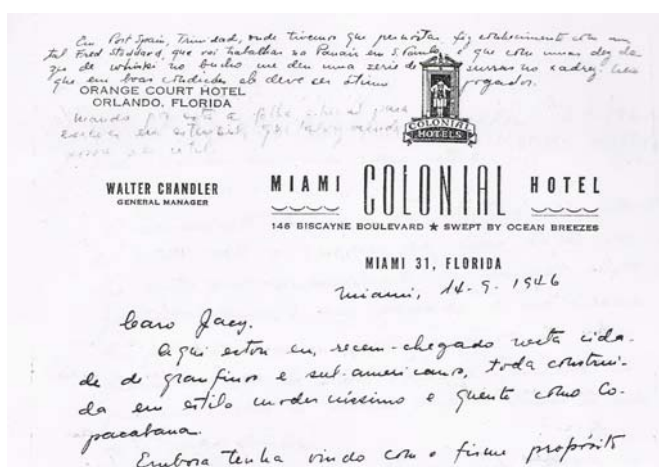 Em Port Spain, Trinidad, onde tivemos que pernoitar, fiz conhecimento com um
tal Fred Stoddard, que vai trabalhar na Panair em S. Paulo, e que com umas dez do
de whiski no bucho me deu uma serie de surras no xadrez.
que em boas condições ele deve ser ótimo jogador.
ORANGE COURT HOTEL
ORLANDO, FLORIDA
COLONIAL
HOTELS
WALTER CHANDLER
GENERAL MANAGER
MIAMI COLONIAL HOTEL
146 BISCAYNE BOULEVARD ★ SWEPT BY OCEAN BREEZES
MIAMI 31, FLORIDA
Miami, 14-9-1946
Caro Jacy.
Aqui estou eu, recem-chegado nesta cida-
de de granfinos e sul-americanos, toda construi-
da em estilo modernissimo e quente como Co-
pacabana.
Embora tenha vindo com o firme proposito